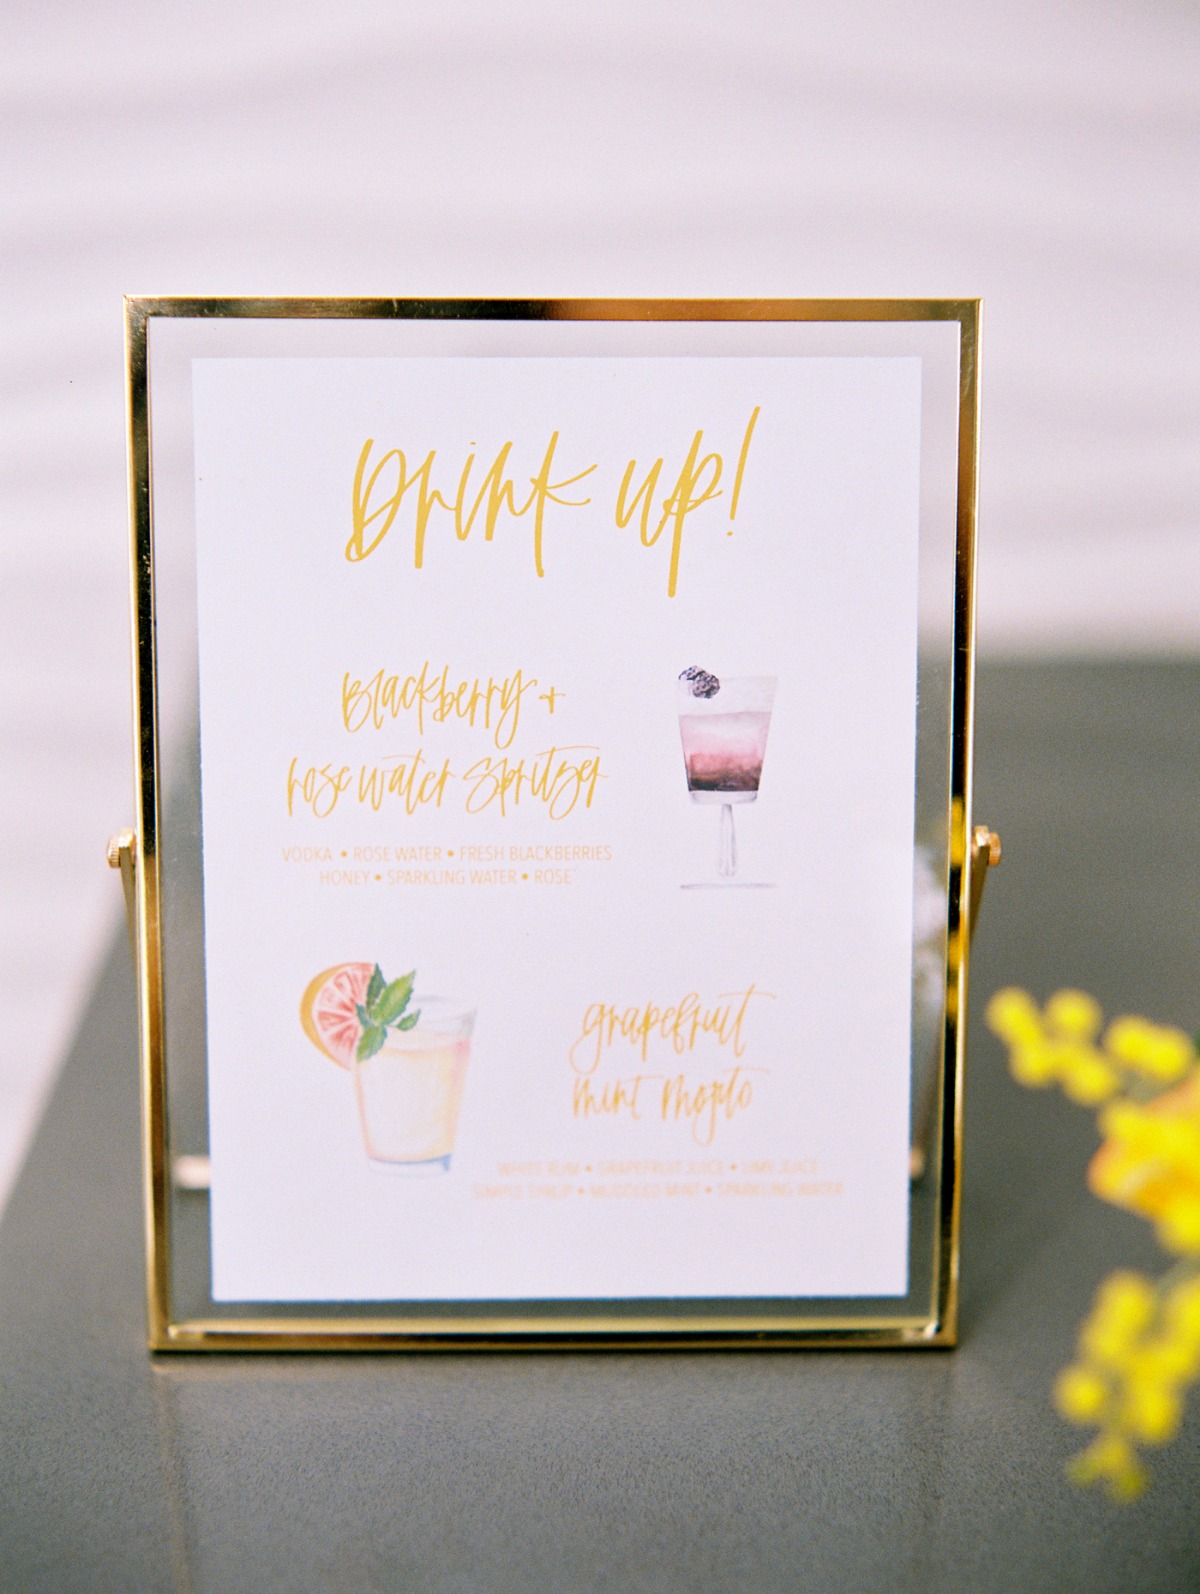 Drink up!
Blackberry +
rose water Spritzer
VODKA • ROSE WATER • FRESH BLACKBERRIES
HONEY • SPARKLING WATER • ROSE
grapefruit
mint mojito
WHITE RUM • GRAPEFRUIT JUICE • LIME JUICE
SIMPLE SYRUP • MUDDLED MINT • SPARKLING WATER